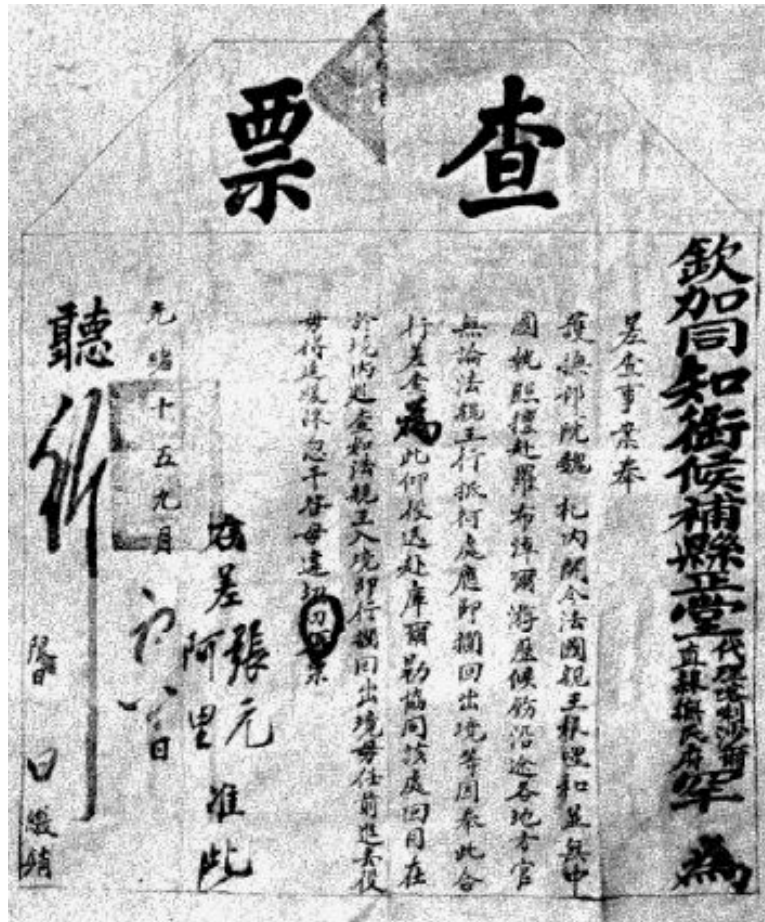 查票
欽加同知銜候補縣正堂代理喀喇沙爾直隸撫民府 為
差查事案奉
護撫部院魏 札內開今法國親王根理和並無中
國執照擅赴羅布淖爾游歷候飭沿途各地方官
無論法親王行抵何處應即攔回出境等因奉此合
行差查為此仰役迅赴庫爾勒協同該處回目在
於境內迎查如法親王入境即行攔回出境毋任前進去役
毋得違 忽干咎毋違切切 票
右差張元
阿里
准此
光緒十五九月
初 日
聽 行
限 日繳銷